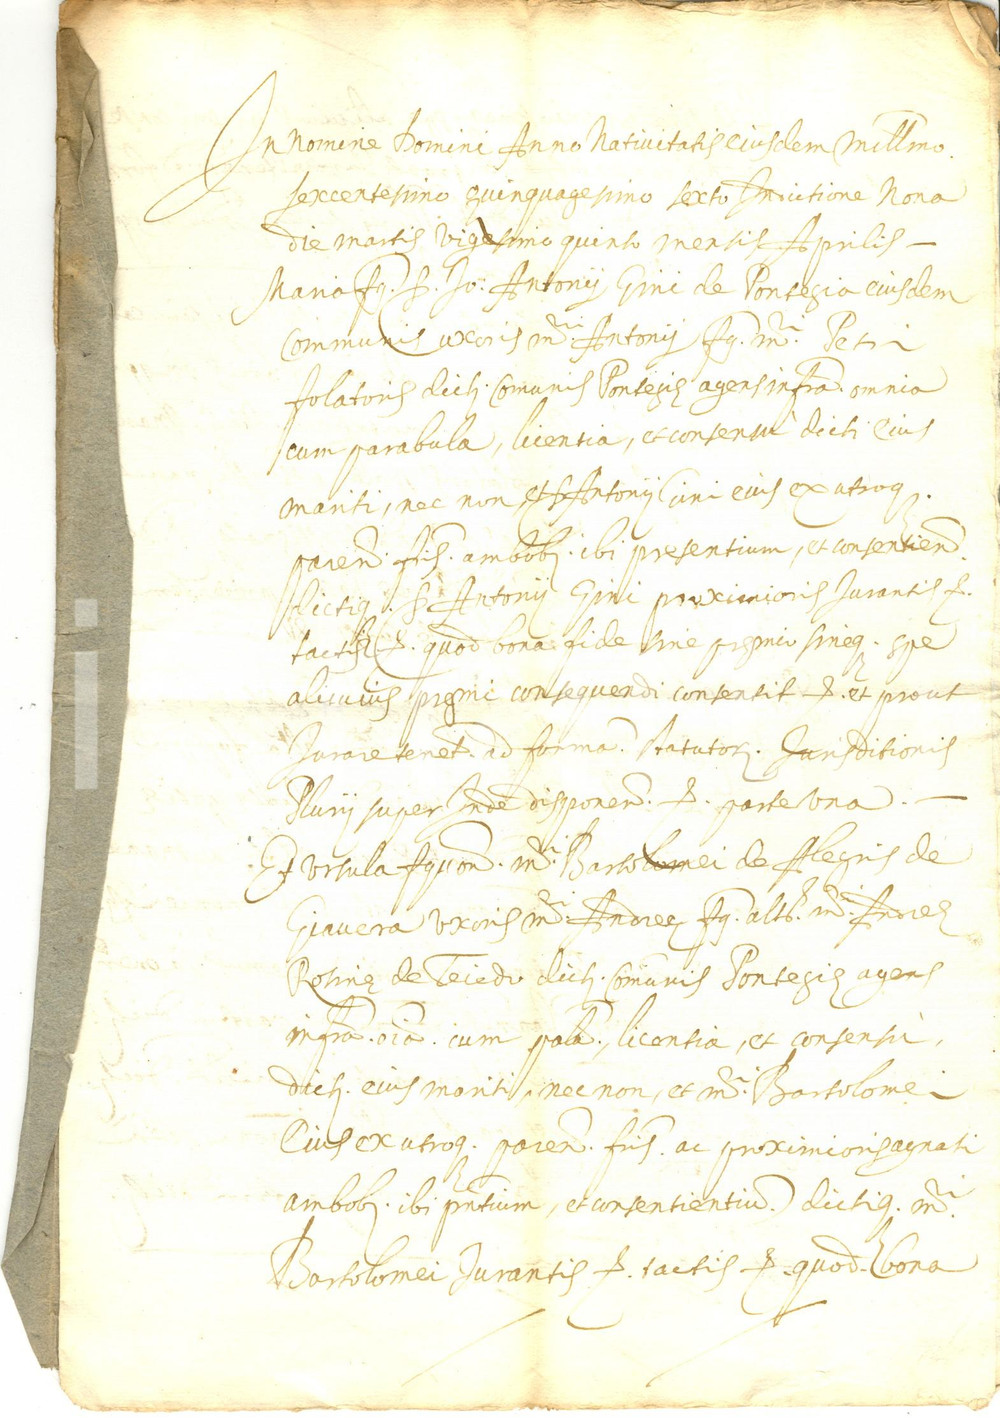 In Nomine Domini Anno Nativitatis eiusdem Millmo.
sexcentesimo quinquagesimo sexto Indictione Nona
die martis vigesimo quinto mensis Aprilis —
Maria fq. S. Jo: Antonij Gini de Pontegia eiusdem
Communis uxoris mri. Antonij fq. mri. Petri
folatoris dicti Comunis Pontegię agens infra. omnia
cum parabula, licentia, et consensu dicti eius
mariti, nec non, et S. Antonij Gini eius ex utroq.
paren. fris. ambob. ibi presentium, et consentien.
dictiq. S. Antonij Gini proximioris Jurantis &.
tactis &. quod bona fide sine premio sineq. spe
alicuius premi consequendi consensit &. et prout
Jurare tenet. ad forma. statutor. Jurisditionis
Plurij super Inde disponen. &. parte una. —
Et Ursula fquon. mri. Bartolomei de Alegris de
Giavera uxoris mri. Andreę fq. alts. mri. Andreę
Rosinę de Teiedo dicti. Comunis Pontegię agens
infra. oia. cum pala., licentia, et consensu,
dicti. eius mariti, nec non, et mri. Bartolomei
Eius ex utroq. paren. fris. ac proximioris agnati
ambob. ibi pntium, et consentientiu. dictiq. mri.
Bartolomei Jurantis &. tactis &. quod. bona